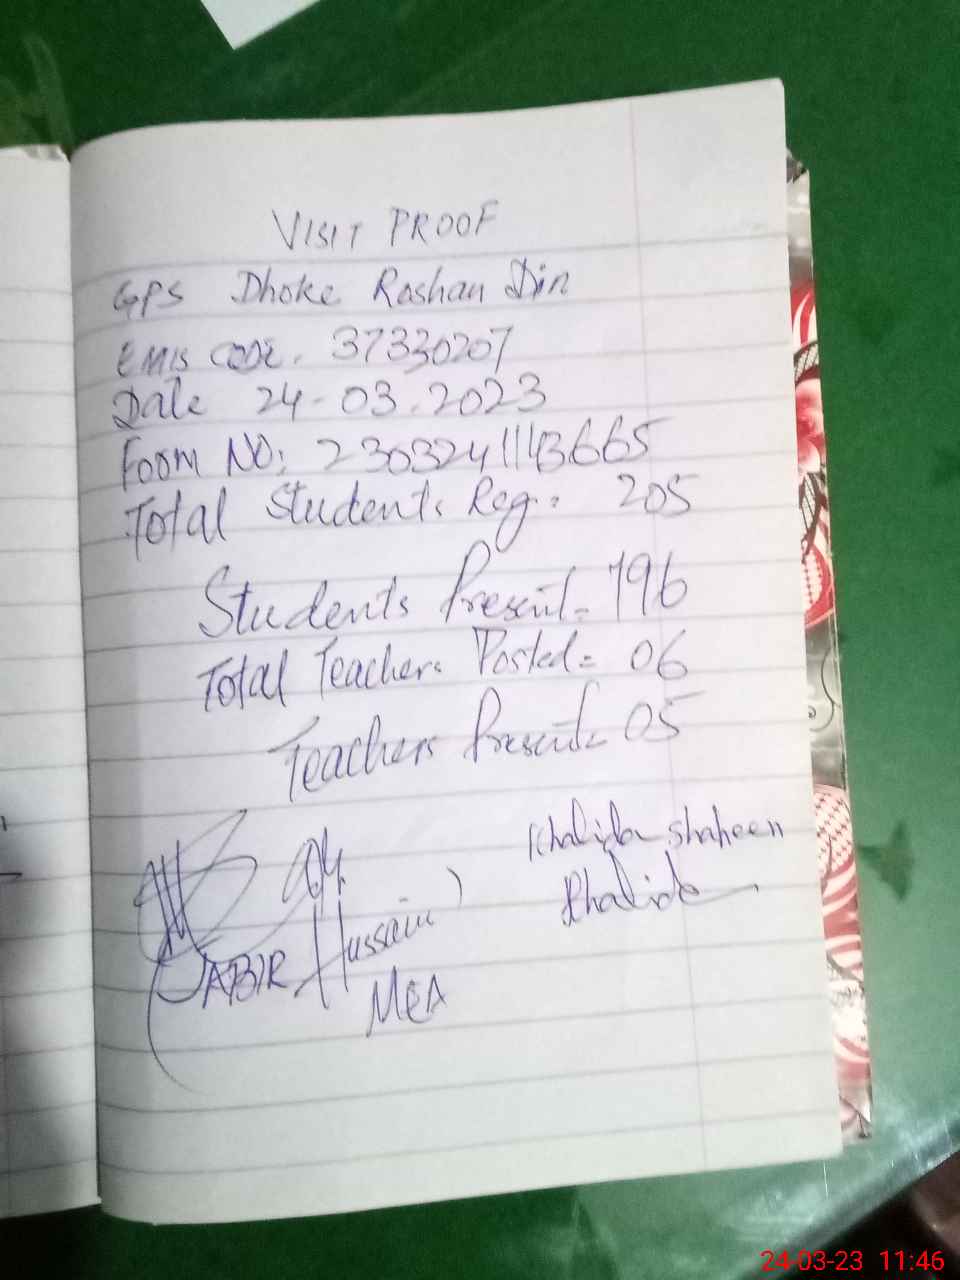 VISIT PROOF
GPS Dhoke Roshan Din
EMIS CODE. 37330207
Date 24-03.2023
Foom NO: 2303241143665
Total Students Reg: 205
Students Present = 196
Total Teachers Posted = 06
Teachers Present = 05
Khalida shaheen
Khalida
JABIR Hussain)
MEA
24-03-23 11:46